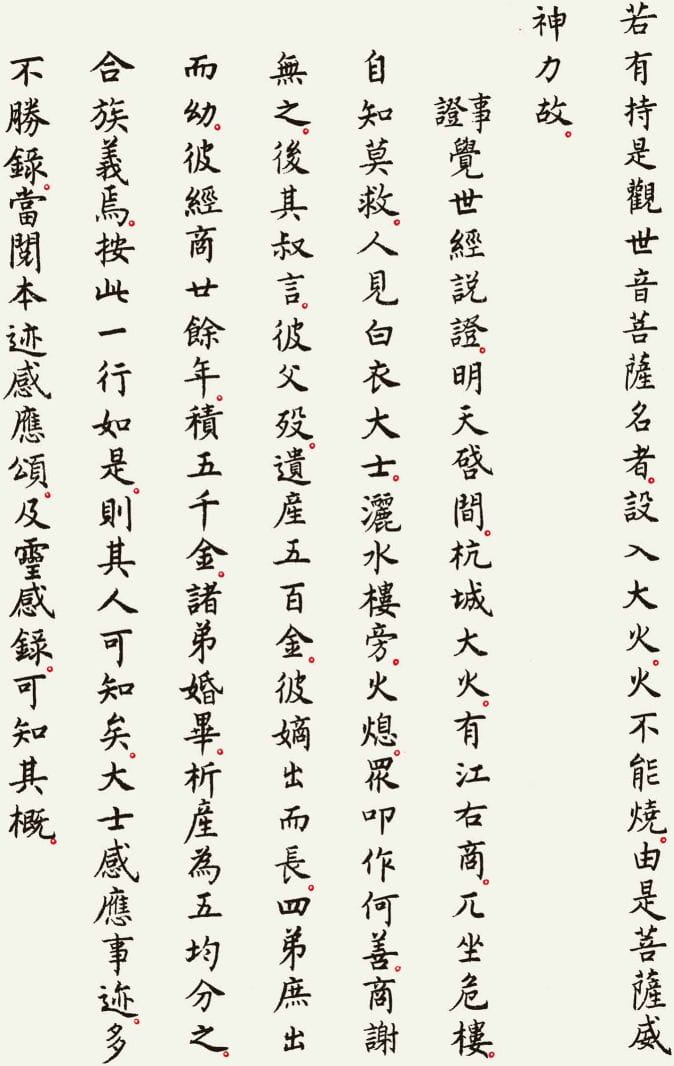 若有持是觀世音菩薩名者。設入大火。火不能燒。由是菩薩威
神力故。
事證覺世經説證。明天啓間。杭城大火。有江右商。兀坐危樓。
自知莫救。人見白衣大士。灑水樓旁。火熄。眾叩作何善。商謝
無之。後其叔言。彼父歿。遺産五百金。彼嫡出而長。四弟庶出
而幼。彼經商廿餘年。積五千金。諸弟婚畢。析産為五均分之。
合族義焉。按此一行如是。則其人可知矣。大士感應事迹。多
不勝錄。當閱本迹感應頌。及靈感錄。可知其概。